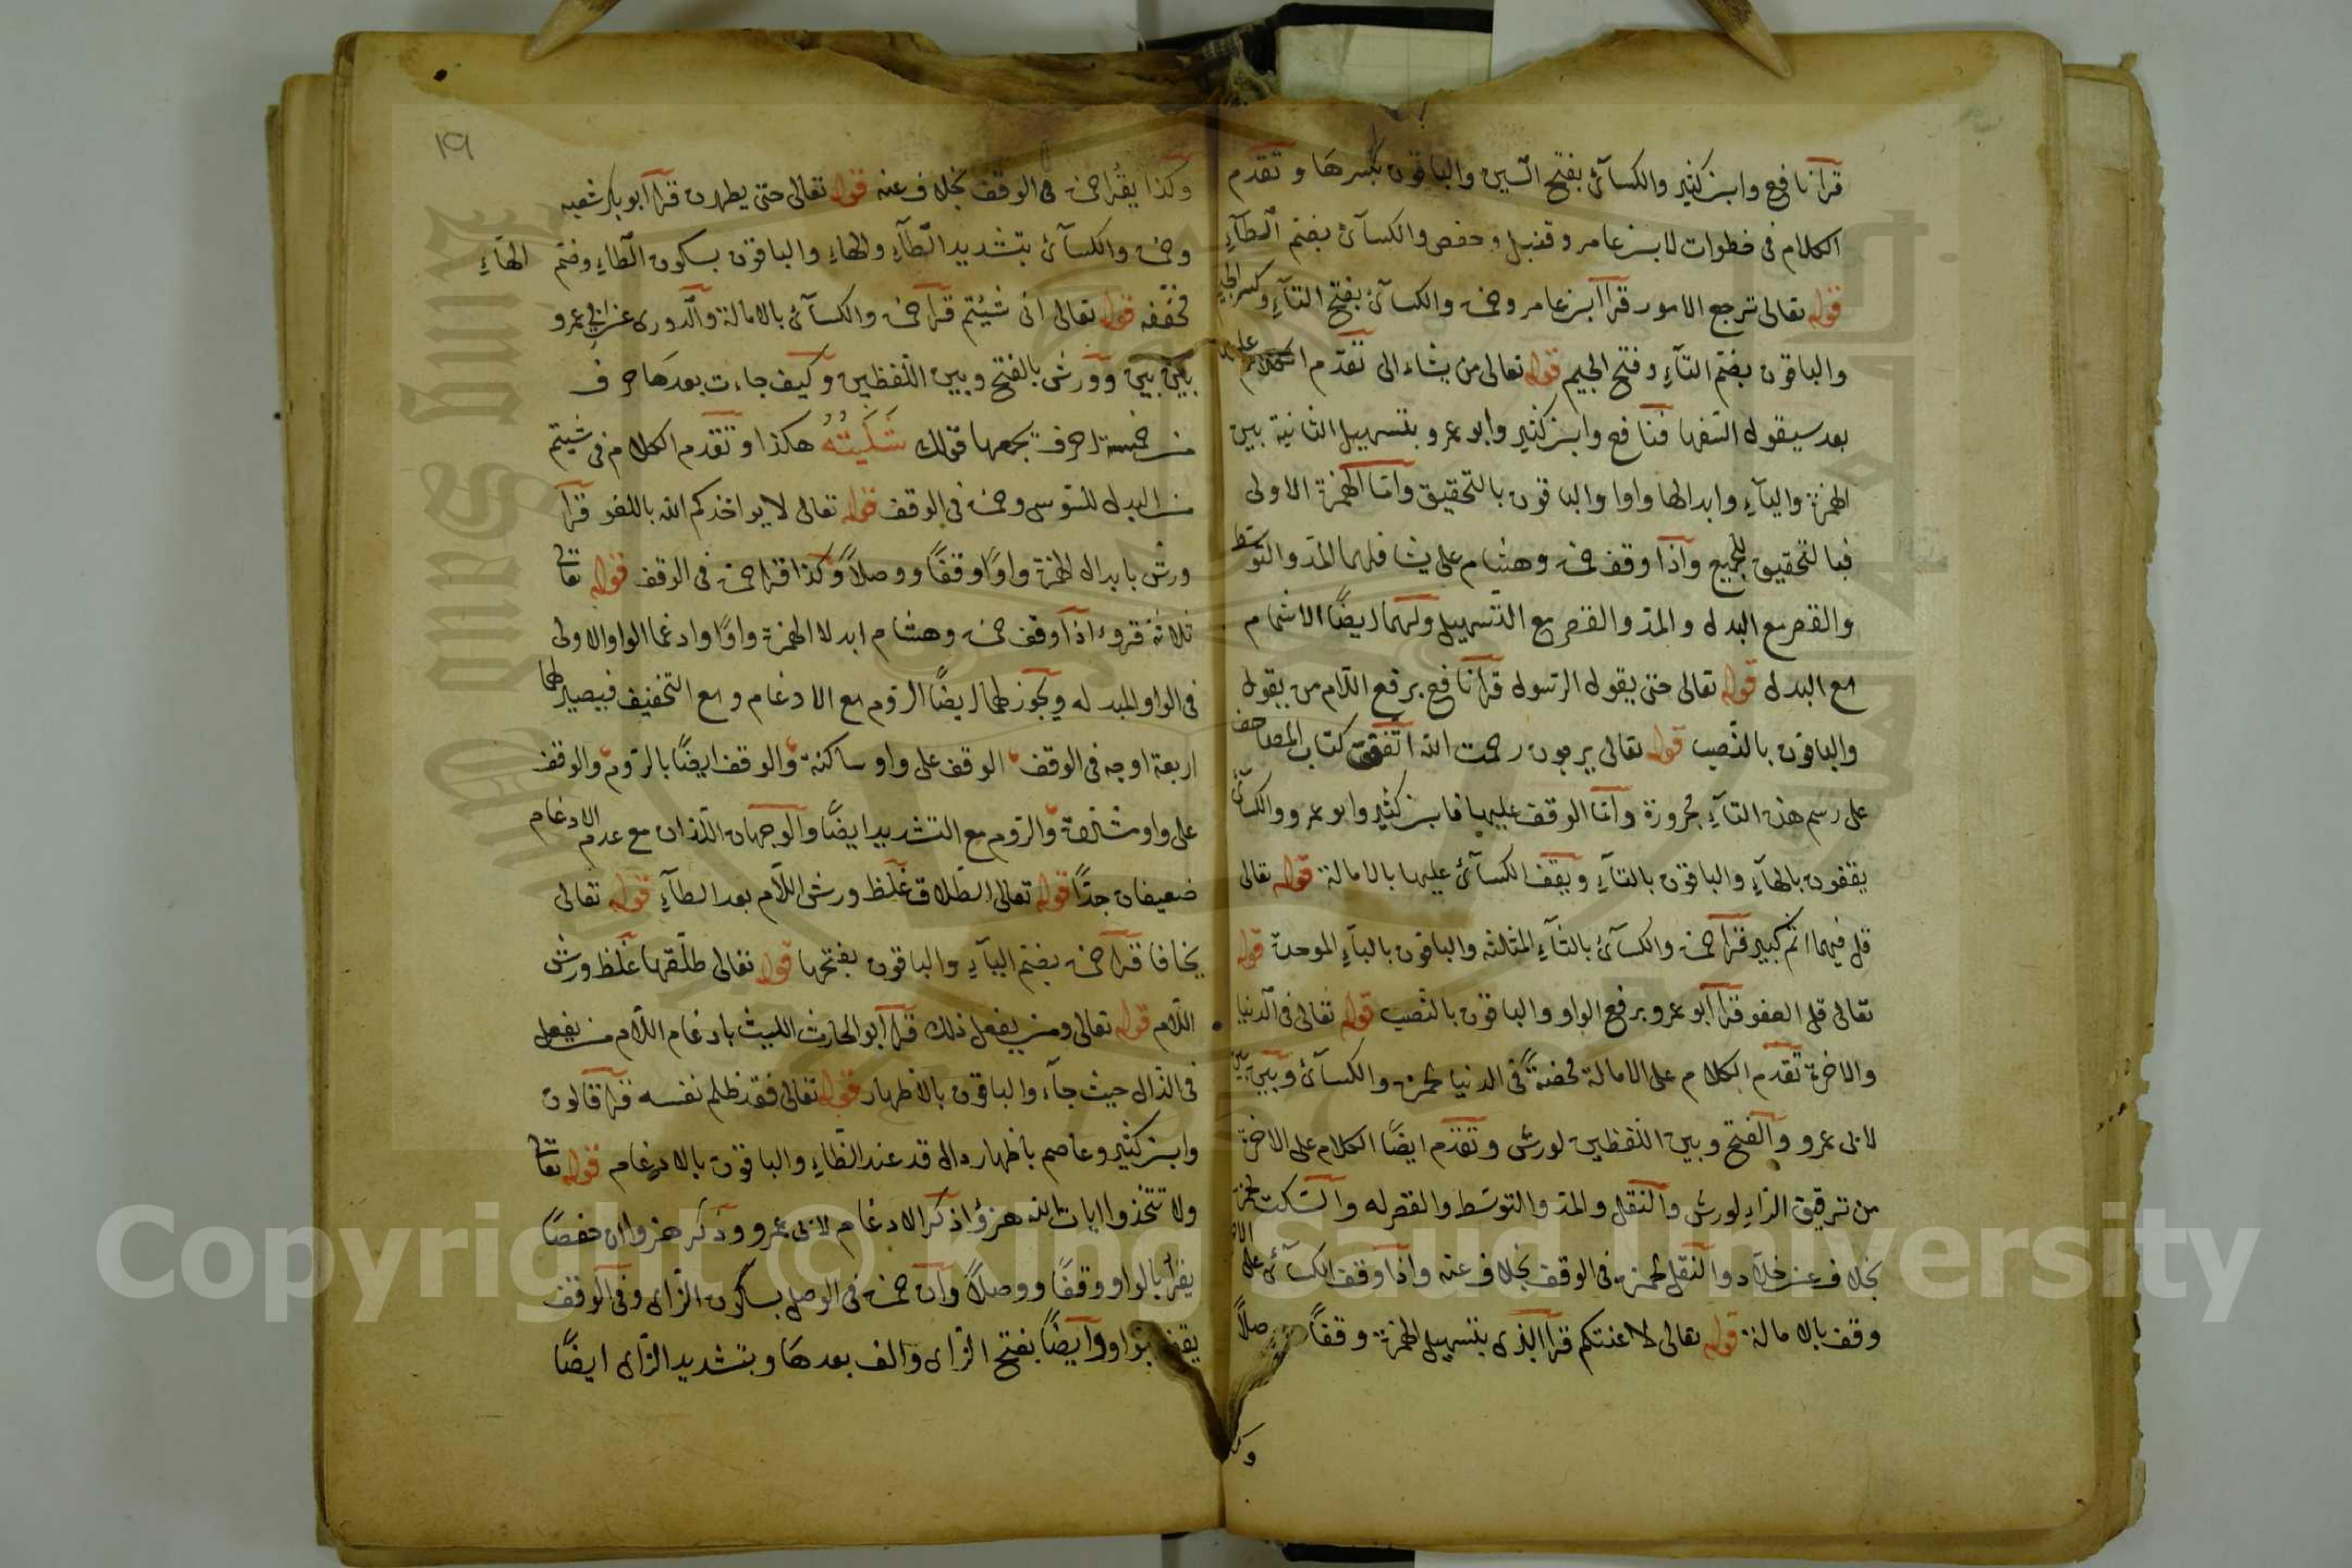 قرأ نافع وابن كثير والكسائى بفتح السين والباقون بكسرها وتقدم
الكلام فى خطوات لابن عامر وقنبل وحفص والكسائى بضم الطآء
قوله تعالى ترجع الامور قرأ ابن عامر وحمزة والكسائى بفتح التآء وكسر الجيم
والباقون بضم التآء وفتح الجيم قوله تعالى من يشاء الى تقدم الكلام عليه
بعد سيقول السفها فنافع وابن كثير وابو عمرو بتسهيل الثانية بين
الهمزة واليآء وابدالها واوا والباقون بالتحقيق واما الهمزة الاولى
فبالتحقيق للجميع واذا وقف حمزة وهشام على يشا فلهما المد والتوسط
والقصر مع البدل والمد والقصر مع التسهيل ولهما ايضًا الاشمام
مع البدل قوله تعالى حتى يقول الرسول قرأ نافع برفع اللام من يقول
والباقون بالنصب قوله تعالى يرجون رحمت الله اتفقت كتاب المصاحف
على رسم هذه التآء مجرورة واما الوقف عليها فابن كثير وابو عمرو والكسائى
يقفون بالهآء والباقون بالتآء ويقف الكسائى عليها بالامالة قوله تعالى
قل فيهما اثم كبير قرأ حمزة والكسائى بالثآء المثلثه والباقون بالبآء الموحدة قوله
تعالى قل العفو قرأ ابو عمرو برفع الواو والباقون بالنصب قوله تعالى فى الدنيا
والاخرة تقدم الكلام على الامالة محضةً فى الدنيا لحمزة والكسائى وبين بين
لابى عمرو والفتح وبين اللفظين لورش وتقدم ايضًا الكلام على الاخرة
من ترقيق الراء لورش والنقل والمد والتوسط والقصر له والسكت لحمزة
بخلاف عن خلاد والنقل لحمزة فى الوقف بخلاف عنه واذا وقف الكسائى على الاخرة
وقف بالامالة قوله تعالى لاعنتكم قرأ البزى بتسهيل الهمزة وقفًا ووصلًا
وكذا يقرأ حمزة فى الوقف بخلاف عنه قوله تعالى حتى يطهرن قرأ ابو بكر شعبه
وحمزة والكسائى بتشديد الطآء والهاء والباقون بسكون الطاء وضم الهآء
مخففه قوله تعالى انى شئتم قرأ حمزة والكسائى بالامالة والدورى عن ابى عمرو
بين بين وورش بالفتح وبين اللفظين وكيف جاءت بعدها حرف
من خمسة احرف يجمعها قولك شليته هكذا وتقدم الكلام فى شيتم
من البدل للسوسى وحمزة فى الوقف قوله تعالى لا يواخذكم الله باللغو قرأ
ورش بابدال الهمزة واوًا وقفًا ووصلًا وكذا قرأ حمزة فى الوقف قوله تعالى
ثلاثة قروء اذا وقف حمزة وهشام ابدلا الهمزة واوًا وادغما الواو الاولى
فى الواو المبدله ويجوز لهما ايضًا الروم مع الادغام ومع التخفيف فيصير لهما
اربعة اوجه فى الوقف الوقف على واو ساكنة والوقف ايضًا بالروم والوقف
على واو مشددة والروم مع التشديد ايضًا والوجهان اللذان مع عدم الادغام
ضعيفان جدًا قوله تعالى الطلاق غلظ ورش اللام بعد الطآء قوله تعالى
يخافا قرأ حمزة بضم اليآء والباقون بفتحها قوله تعالى طلقها غلظ ورش
اللام قوله تعالى ومن يفعل ذلك قرأ ابو الحارث الليث بادغام اللام من يفعل
فى الذال حيث جآء والباقون بالاظهار قوله تعالى فقد ظلم نفسه قرأ قالون
وابن كثير وعاصم باظهار دال قد عند الظاء والباقون بالادغام قوله تعالى
ولا تتخذوا ايات الله هزؤا ذكر الادغام لابى عمرو وذكر هزوا ان حفصًا
يقرأ بالواو وقفًا ووصلًا وان حمزة فى الوصل بسكون الزاى وفى الوقف
يقف بواو وايضًا بفتح الزاى والف بعدها وبتشديد الزاى ايضًا
١٩
Copyright © King Saud University